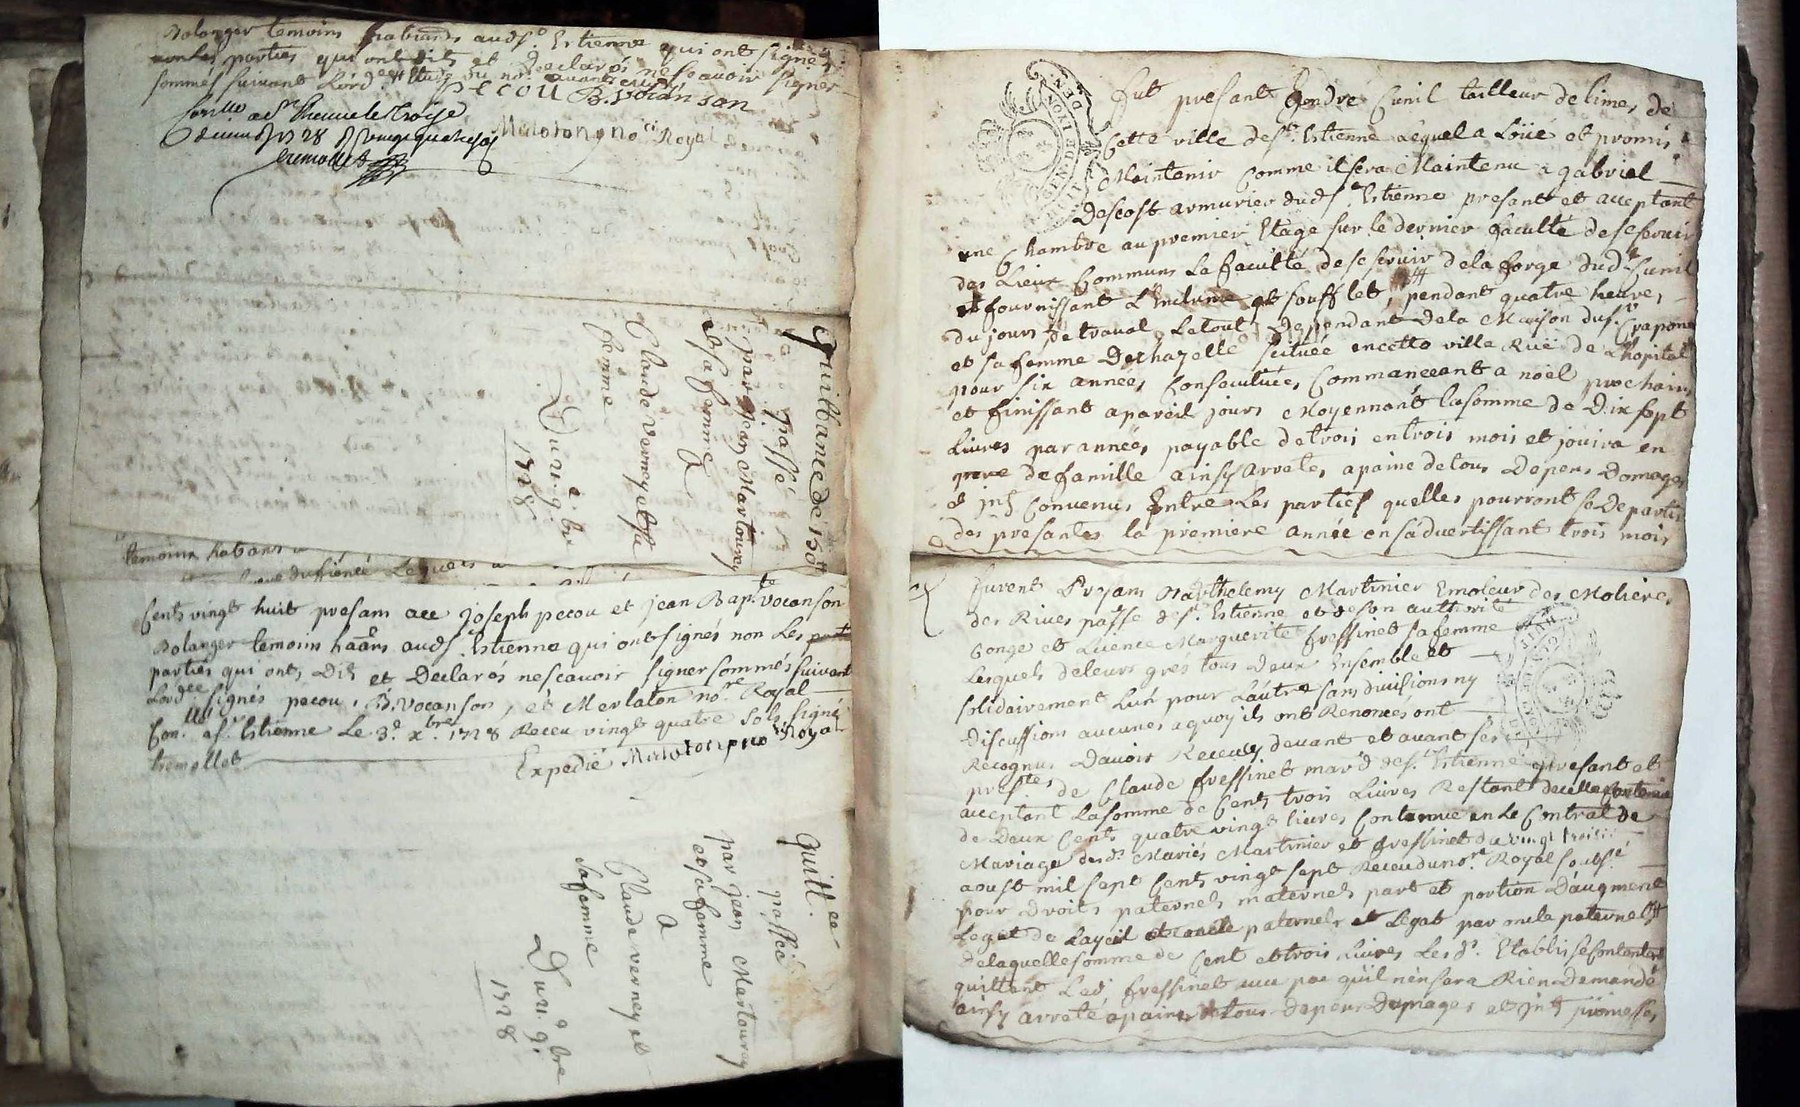 Bolanger temoins habitants aud St. Estienne qui ont signés
non les parties qui ont dits et declarés nescavoir signer
sommés suivant
pecou B. Vocanson
1728
Royal
Quittance de 190tt
passé
par jean Martourey
et sa femme
A
Claude verney et sa
femme
Du 21e 9bre
1728
temoins
Cent vingt huit presans ace joseph pecou et jean Bapte. vocanson
Bolanger temoins haans aud St. Estienne qui ont signés non Les
parties qui ont, Dits et Declarés nescavoir signer sommés suivant
Lordce signés pecou, B. vocanson, et Merlaton nore. Royal
Conlle. a St. Estienne Le 3e. xbre. 1728 Receu vingt quatre sols, signé
tremollet
Expedié Royal
Quittce
passée
par jean Martourey
et sa femme
A
Claude verney et
sa femme
Du 21e 9bre
1728
Fut presant Andre Cunil tailleur de limes de
Cette ville de St. Estienne Lequel a Loüé et promis
Maintenir Comme il sera Maintenu a gabriel
Descost armurier dud St. Estienne presant et acceptant
une Chambre au premier Etage sur le dernier faculté de se servir
des Lieux Communs La faculté de se servir de la forge dud. Cunil
et fournissant L'Enclume et soufflet, pendant quatre heures
du jours de travail, Le tout Dependant de la Maison du Sr. Crapone
et sa femme Dechazelle scituée en cette ville Rüe de L'hopital
pour six années Consecutives Commanceant a noël prochain
et finissant a pareil jours Moyennant la somme de Dix sept
Livres par années, payable de trois en trois mois et jouira en
pere de famille ainsy arreté, a paine de tous Depens Domages
et jnts Convenus Entre Les parties quelles pourront se Departir
des presantes la premiere année en sadvertissant trois mois
Furent Presans Barthelemy Martinier Emoleur des Molieres
des Rives passe de St. Estienne et de son authorité
Conge et Licence Marguerite fressinet sa femme
Lesquels de leurs grés tous deux Ensemble et
solidairement L'un pour L'autre sans divisions ny
Discussions aucunes a quoy ils ont Renoncés ont
Recognus Davoir Receus devant et avant ses
prestes de Claude fressinet mard de St. Estienne presant et
acceptant La somme de Cent trois Livres Restant de celle
de Deux Cent quatre vingt livres Contenue en Le Contrat de
Mariage desds. Mariés Martinier et fressinet du vingt troisie
aoust mil sept Cent vingt sept Receu du nore. Royal soubsé
pour droits paternels maternels part et portion D'augment
Legat de Layeul paternel et Legat par
de laquelle somme de Cent et trois Livres Les ds. Etablis se Contentent
quittent Led. fressinet avec pac qu'il n'en sera Rien Demandé
ainsy arreté a paine de tous Depens Domages et jnts promesses